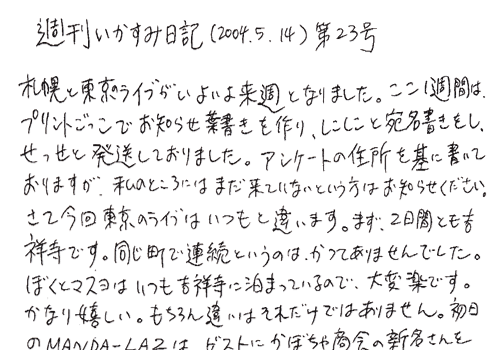 週刊いかすみ日記(2004.5.14)第23号
札幌と東京のライブがいよいよ来週となりました。ここ1週間は、
プリントごっこでお知らせ葉書きを作り、しこしこと宛名書きをし、
せっせと発送しておりました。アンケートの住所を基に書いて
おりますが、私のところにはまだ来ていないという方はお知らせください。
さて今回東京のライブはいつもと違います。まず、2日間とも吉
祥寺です。同じ町で連続というのは、かつてありませんでした。
ぼくとマスヨはいつも吉祥寺に泊まっているので、大変楽です。
かなり嬉しい。もちろん違いはそれだけではありません。初日
のMANDA-LA2は、ゲストにかぼちゃ商会の新名さんを